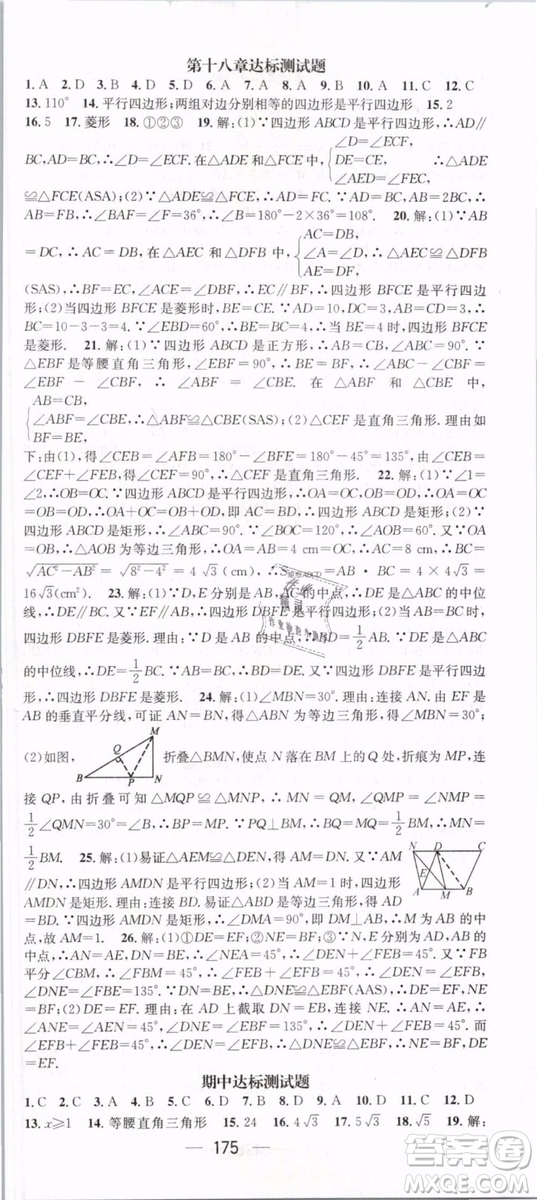 第十八章达标测试题
1. A  2. D  3. B  4. D  5. D  6. A  7. A  8. B  9. B  10. A  11. C  12. C
13. 110°  14. 平行四边形;两组对边分别相等的四边形是平行四边形  15. 2
16. 5  17. 菱形  18. ①②③  19. 解:(1)∵四边形 ABCD 是平行四边形,∴AD∥
BC,AD=BC,∴∠D=∠ECF. 在△ADE 和△FCE 中,{∠D=∠ECF, DE=CE, ∠AED=∠FEC, ∴△ADE
≌△FCE(ASA);(2)∵△ADE≌△FCE,∴AD=FC,∵AD=BC,AB=2BC,∴
AB=FB,∴∠BAF=∠F=36°,∴∠B=180°-2×36°=108°.  20. 解:(1)∵AB
=DC,∴AC=DB,在△AEC 和△DFB 中,{AC=DB, ∠A=∠D, AE=DF, ∴△AEC≌△DFB
(SAS),∴BF=EC,∠ACE=∠DBF,∴EC∥BF,∴四边形 BFCE 是平行四边
形;(2)当四边形 BFCE 是菱形时,BE=CE,∵AD=10,DC=3,AB=CD=3,∴BC
=10-3-3=4,∵∠EBD=60°,∴BE=BC=4,∴当 BE=4 时,四边形 BFCE
是菱形.  21. 解:(1)∵四边形 ABCD 是正方形,∴AB=CB,∠ABC=90°. ∵
△EBF 是等腰直角三角形,∴∠EBF=90°,BE=BF,∴∠ABC-∠CBF=
∠EBF-∠CBF,∴∠ABF=∠CBE. 在△ABF 和△CBE 中
{AB=CB, ∠ABF=∠CBE, BF=BE, ∴△ABF≌△CBE(SAS);(2)△CEF 是直角三角形. 理由如
下:由(1),得∠CEB=∠AFB=180°-∠BFE=180°-45°=135°,由∠CEB
=∠CEF+∠FEB,得∠CEF=90°,∴△CEF 是直角三角形.  22. 解:(1)∵∠1=
∠2,∴OB=OC. ∵四边形 ABCD 是平行四边形,∴OA=OC,OB=OD. ∴OA=
OB=OC=OD,∴OA+OC=OB+OD,即 AC=BD,∴四边形 ABCD 是矩形;(2)∵
四边形 ABCD 是矩形,∴∠ABC=90°,∵∠BOC=120°,∴∠AOB=60°. 又∵OA
=OB,∴△OAB 为等边三角形,∴OA=AB=4 cm,∴AC=2OA=8 cm. ∴BC=
√AC²-AB²=√8²-4²=4√3(cm),∴S矩形ABCD=AB·BC=4×4√3=
16√3(cm²)  23. 解:(1)∵D,E 分别是 AB,AC 的中点,∴DE 是△ABC 的中位
线,∴DE∥BC. 又∵EF∥AB,∴四边形 DBFE 是平行四边形;(2)当 AB=BC 时,
四边形 DBFE 是菱形. 理由:∵D 是 AB 的中点,∴BD=1/2AB. ∵DE 是△ABC
的中位线,∴DE=1/2BC. ∵AB=BC,∴BD=DE. 又∵四边形 DBFE 是平行四边
形,∴四边形 DBFE 是菱形.  24. 解:(1)∠MBN=30°. 理由:连接 AN. 由 EF 是
AB 的垂直平分线,可证 AN=BN=AB,得△ABN 为等边三角形,得∠MBN=30°;
(2)如图, 折叠△BMN,使点 N 落在 BM 上的 Q 处,折痕为 MP,连
B Q M P N
接 QP,由折叠可知△MQP≌△MNP,∴MN=MQ,∠QMP=∠NMP=
1/2∠QMN=30°=∠B,∴BP=MP. 又∵PQ⊥BM,∴BQ=MQ,∴MN=
1/2BM.  25. 解:(1)易证△AEM≌△DEN,∴AM=DN. 又∵AM
∥DN,∴四边形 AMDN 是平行四边形;(2)当 AM=1 时,四边形
N D C E A M B
AMDN 是矩形. 理由:易证△AME 是等边三角形,∴AE=ME,∴AD=MN,∴四
边形 AMDN 是矩形,∴∠DMA=90°. 又∵四边形 ABCD 是菱形,∴M 为 AB 的中
点,故 AM=1.  26. 解:(1)①DE=EF;②NE=BF;③∵N,E 分别为 AD,AB 的中
点,∴AN=DN=1/2AD,AE=EB=1/2AB,∴DN=BE,AN=AE. ∵∠DEF=90°,
∴∠AED+∠FEB=90°. 又∵∠ADE+∠AED=90°,∴∠FEB=∠ADE. ∵BF 平
分∠CBM,∴∠FBM=45°,∴∠EFB+∠FEB=45°,∴∠EFB+∠ADE=45°,
∠DNE=∠FBE=135°,∴△DNE≌△EBF,∴DE=EF,NE=BF;(2)如图,此时
DE=EF. 理由:在 AD 上截取 DN=EB,连接 NE,∴AE=AN,
∴∠ANE=∠AEN=45°,∴∠ADE+∠DEN=45°,∠DNE=135°. 而∠EFB
+∠FEB=45°,∴∠DEN=∠EFB,又∵∠EBF=135°,∴△DNE≌△EBF,∴DE=
EF.
期中达标测试题
1. C  2. D  3. D  4. A  5. A  6. B  7. A  8. C  9. D  10. C  11. C  12. D
13. x⩾1  14. 等腰直角三角形  15. 24  16. 4√3  17. 5√3  18. 4√3  19. 解:
175
答案圈
MXQE.COM